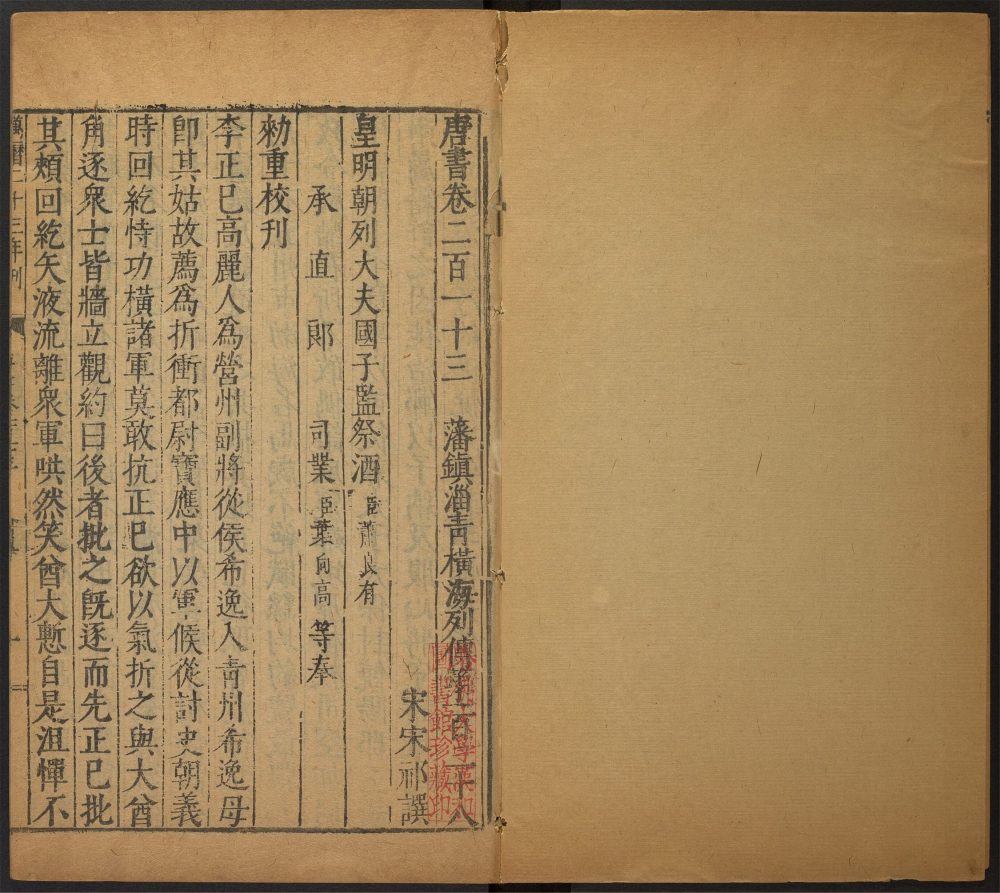 唐書卷二百一十三 藩鎮淄青橫海列傳第一百三十八
宋宋祁譔
皇明朝列大夫國子監祭酒臣蕭良有
承直郎 司業臣葉向高等奉
勑重校刊
李正已高麗人爲營州副將從侯希逸入青州希逸母
卽其姑故薦爲折衝都尉寶應中以軍候從討史朝義
時回紇恃功橫諸軍莫敢抗正已欲以氣折之與大酋
角逐衆士皆牆立觀約曰後者批之旣逐而先正已批
其頰回紇矢液流離衆軍哄然笑酋大慙自是沮憚不
萬曆二十三年刊
哈佛大學漢和
圖書館珍藏印